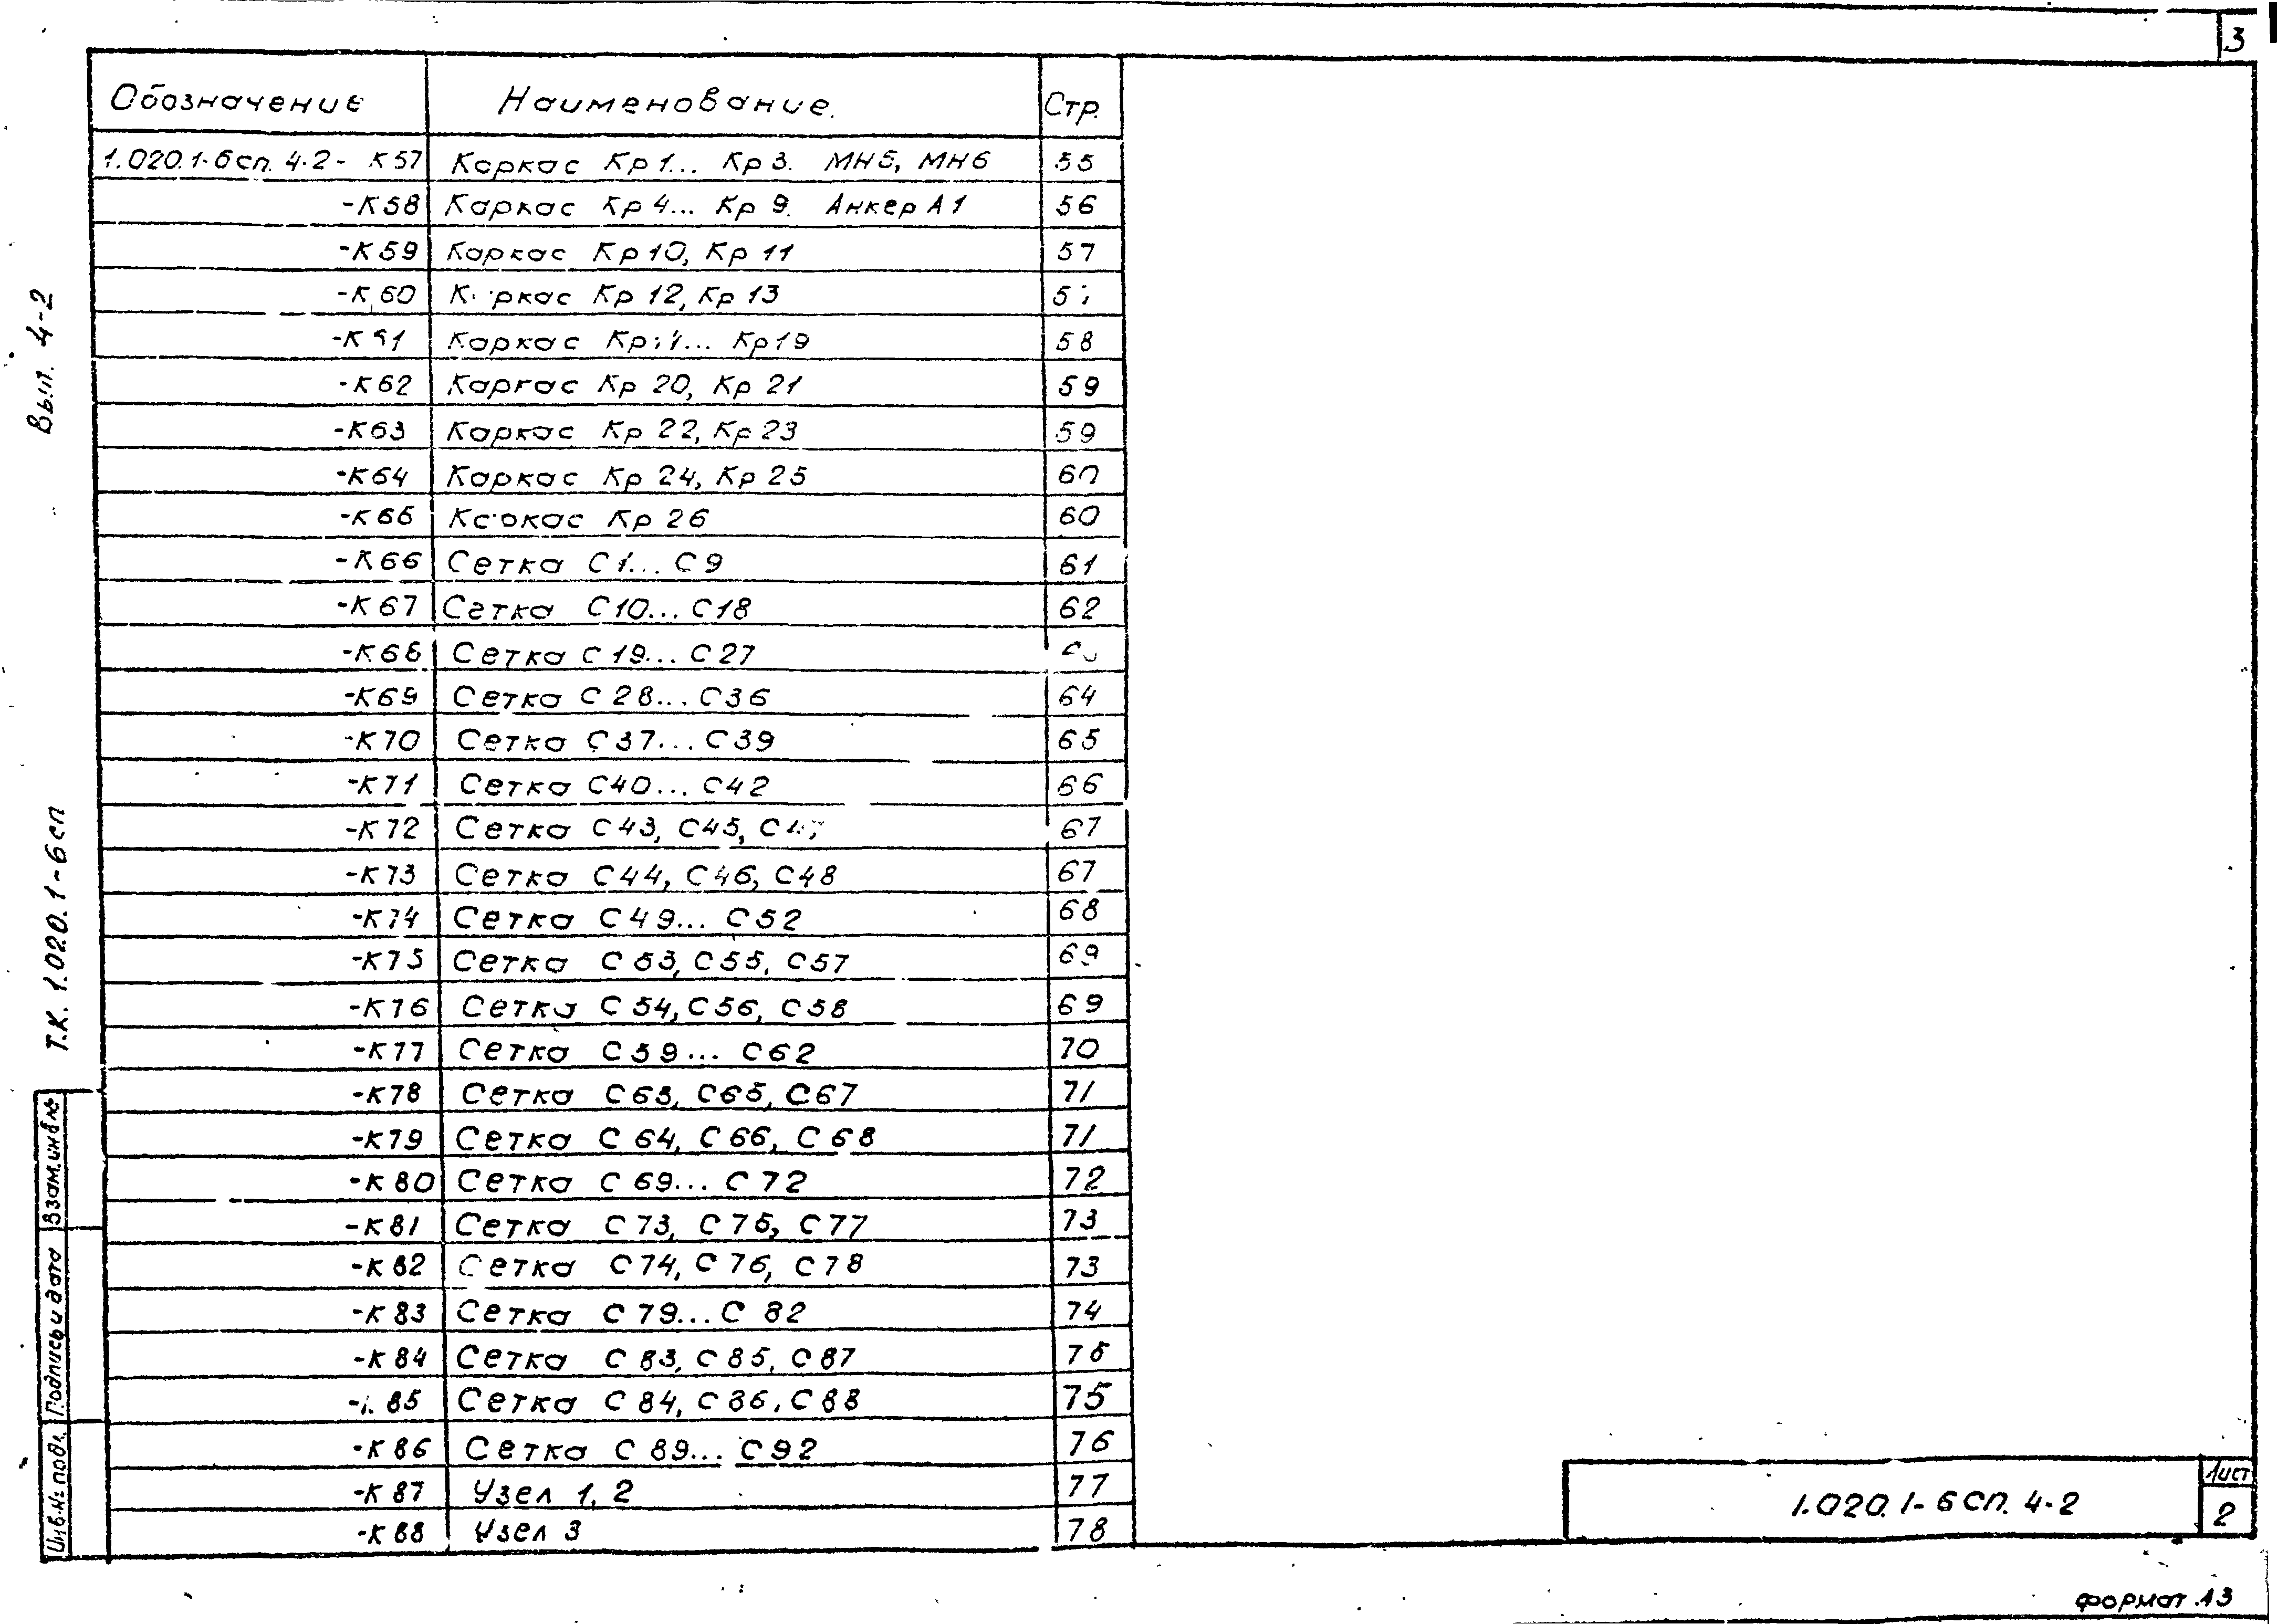 3
Обозначение Наименование. Стр.
1.020.1-6сп. 4-2- К57 Каркас Кр1... Кр3. МН5, МН6 55
-К58 Каркас Кр4... Кр9. Анкер А1 56
-К59 Каркас Кр10, Кр11 57
-К60 Каркас Кр12, Кр13
-К61 Каркас Кр14... Кр19 58
-К62 Каркас Кр20, Кр21 59
-К63 Каркас Кр22, Кр23 59
-К64 Каркас Кр24, Кр25 60
-К65 Каркас Кр26 60
-К66 Сетка С1... С9 61
-К67 Сетка С10... С18 62
-К68 Сетка С19... С27
-К69 Сетка С28... С36 64
-К70 Сетка С37... С39 65
-К71 Сетка С40... С42 66
-К72 Сетка С43, С45, С47 67
-К73 Сетка С44, С46, С48 67
-К74 Сетка С49... С52 68
-К75 Сетка С53, С55, С57 69
-К76 Сетка С54, С56, С58 69
-К77 Сетка С59... С62 70
-К78 Сетка С63, С65, С67 71
-К79 Сетка С64, С66, С68 71
-К80 Сетка С69... С72 72
-К81 Сетка С73, С75, С77 73
-К82 Сетка С74, С76, С78 73
-К83 Сетка С79... С82 74
-К84 Сетка С83, С85, С87 75
-К85 Сетка С84, С86, С88 75
-К86 Сетка С89... С92 76
-К87 Узел 1, 2 77
-К88 Узел 3 78
Вып. 4-2
Т.К. 1.020.1-6сп
Взам.инв.№
Подпись и дата
Инв.№ подл.
1.020.1-6СП. 4-2
Лист
2
Формат А3